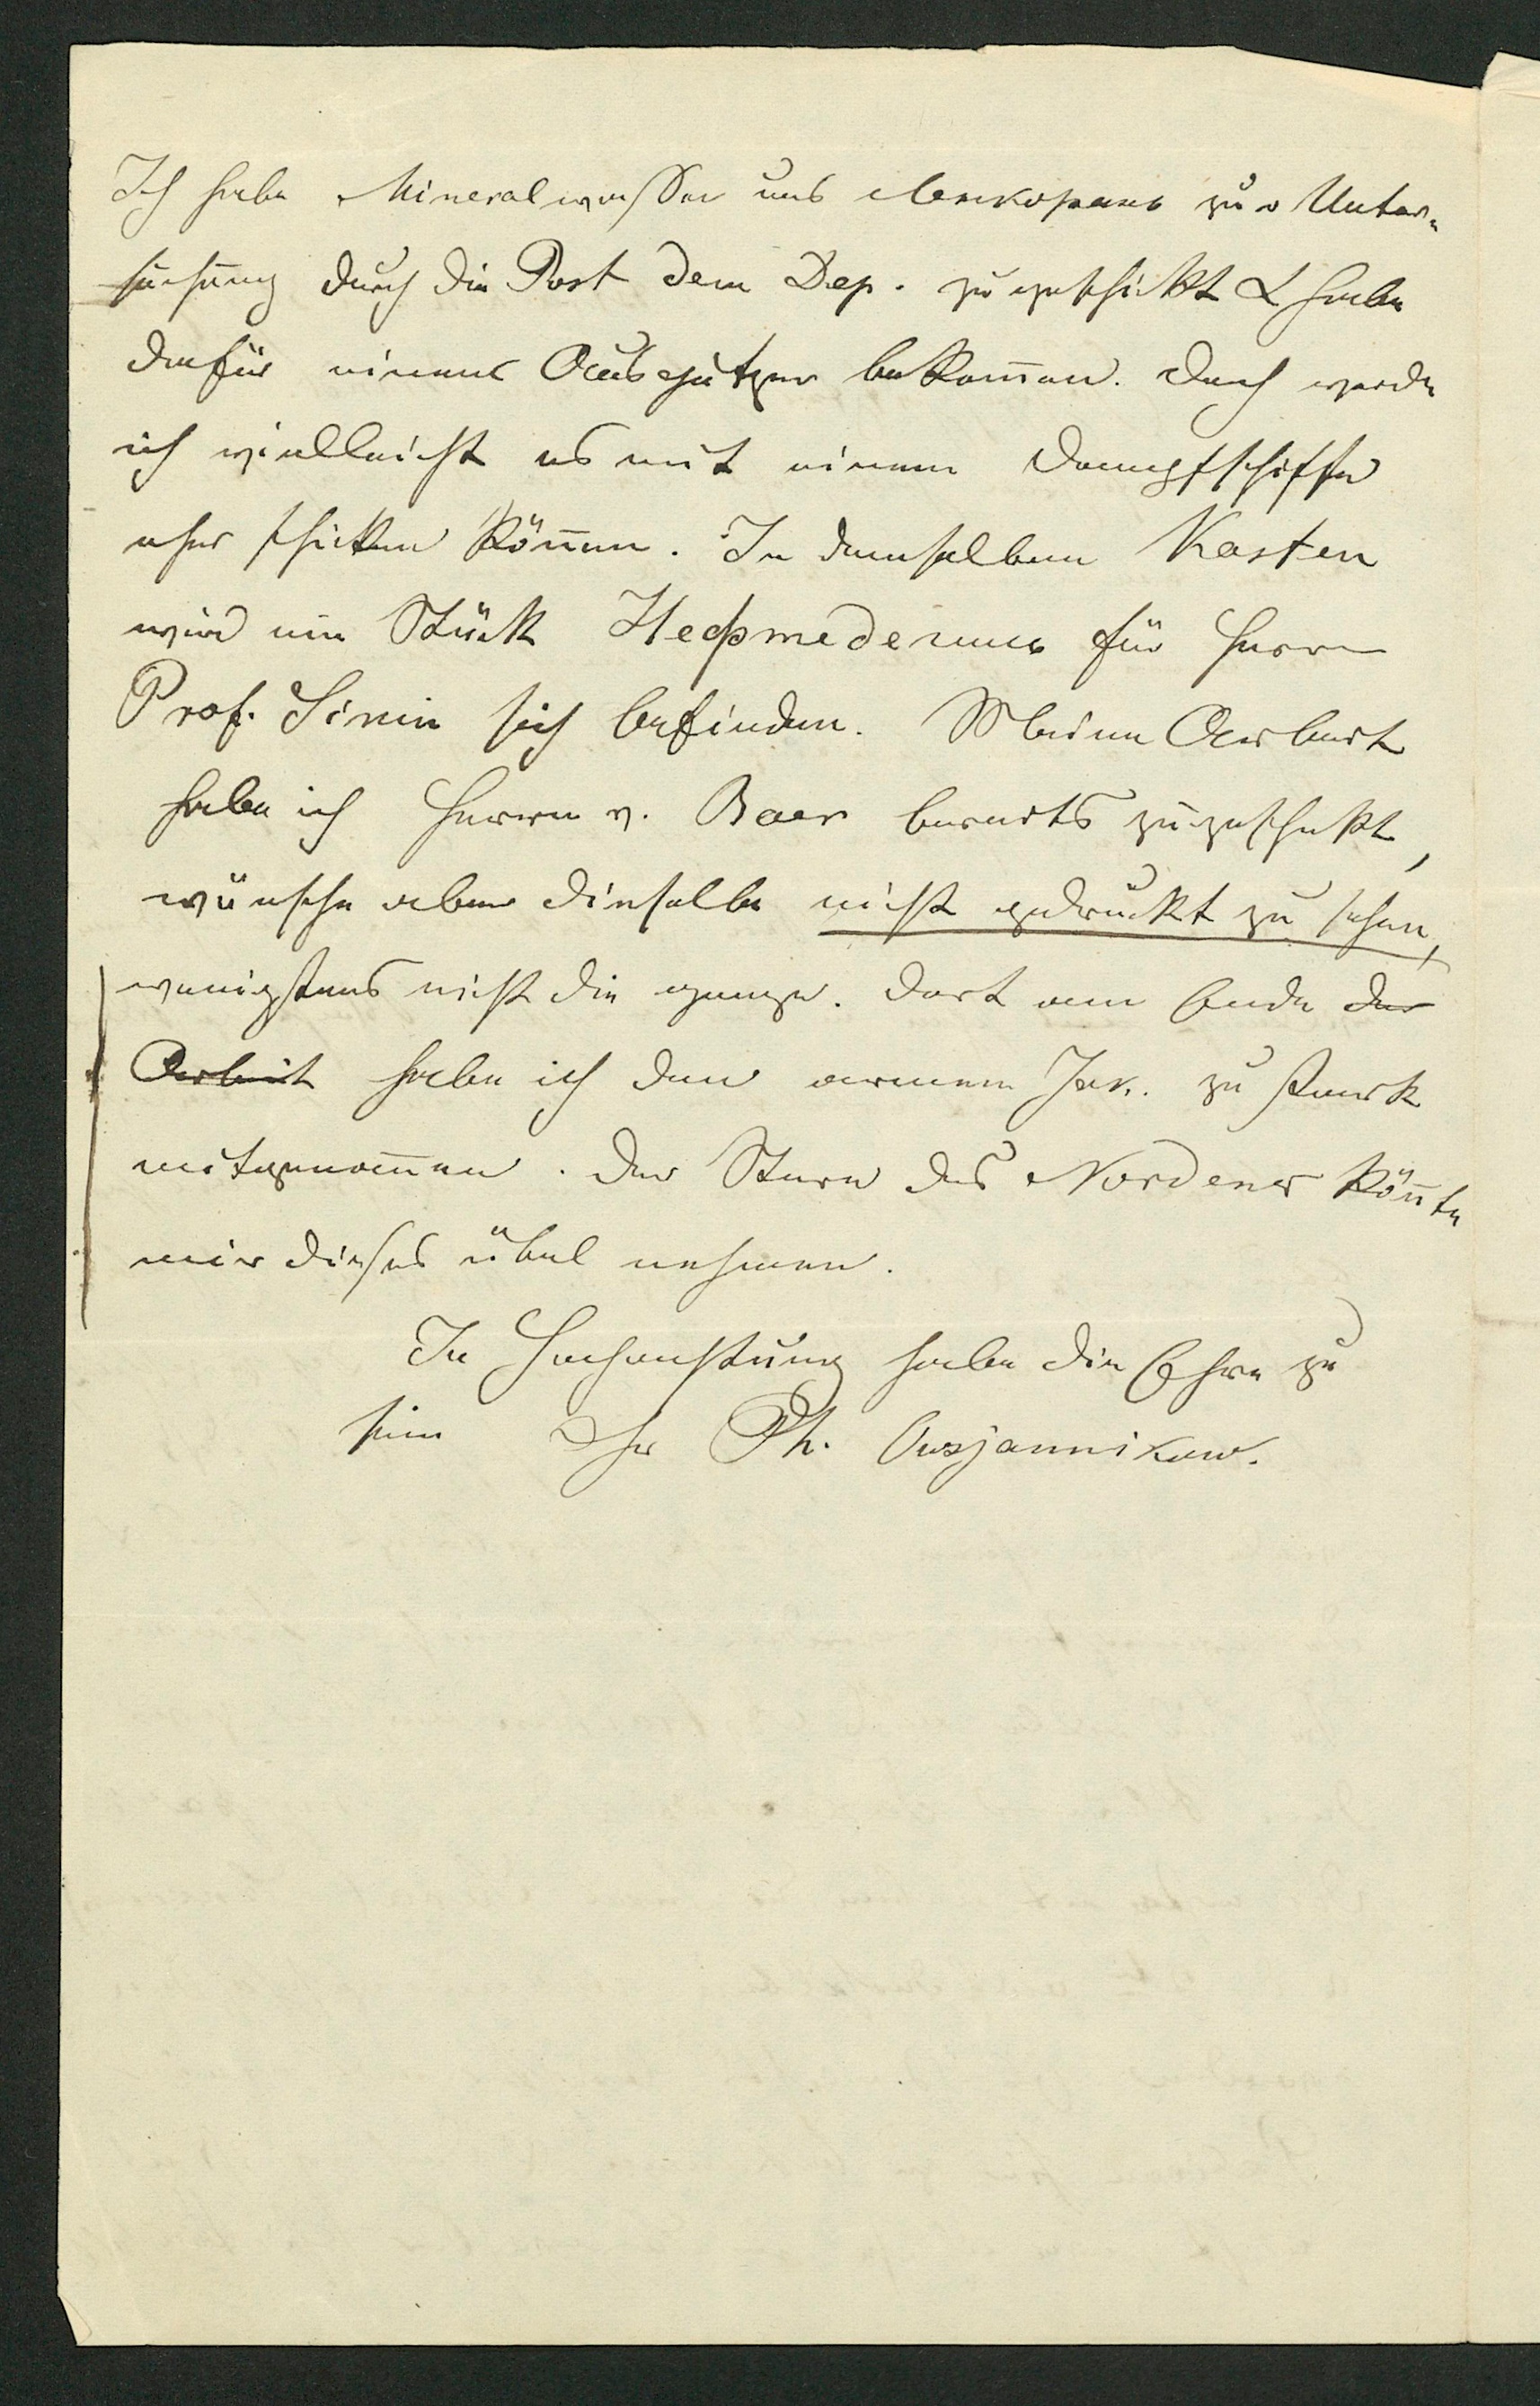 Ich habe Mineralwasser aus Ленкорань zur Unter-
suchung durch die Post dem Dep. zugeschickt & habe
dafür einen Ausputzer bekommen. Doch werde
ich vielleicht es mit einem Dampfschiffe
eher schicken können. In demselben Kasten
wird ein Stück Нефтедегиль für Herrn
Prof. Sinin sich befinden. Meine Arbeit
habe ich Herrn v. Baer bereits zugeschickt,
wünsche aber dieselbe nicht gedruckt zu sehen,
wenigstens nicht die ganze. Dort am Ende der
Arbeit habe ich den armen Jak. zu stark
mitgenommen. Der Stern des Nordens könnte
mir dieses übel nehmen.
In Hochachtung habe die Ehre zu
sein Ihr Ph. Owsjannikow.